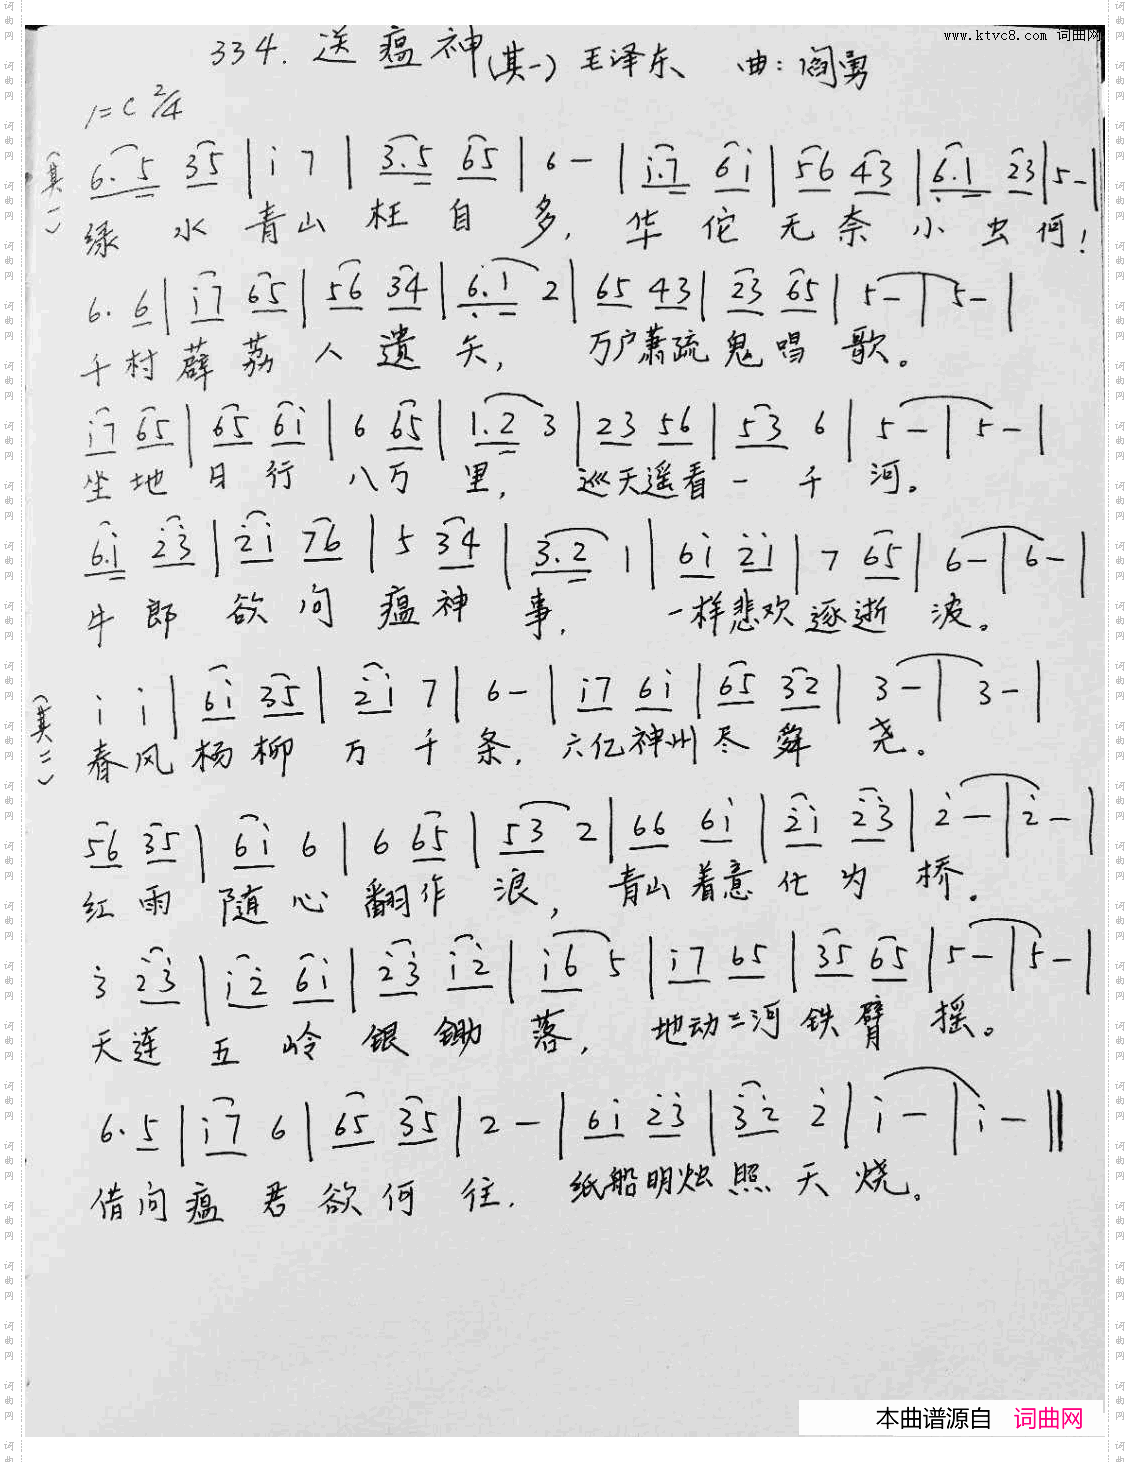 www.ktvc8.com 词曲网
334. 送瘟神(其一) 毛泽东、 曲: 阎勇
1=C 2/4
(其一)
6.5 35 | i 7 | 3.5 65 | 6 - | i.7 6i | 56 43 | 6.1 23 | 5 - |
绿水青山枉自多, 华佗无奈小虫何!
6. 6 | i7 65 | 56 34 | 6.1 2 | 65 43 | 23 65 | 5 - | 5 - |
千村薜荔人遗矢, 万户萧疏鬼唱歌。
i7 65 | 65 6i | 6 65 | 1.2 3 | 23 56 | 53 6 | 5 - | 5 - |
坐地日行八万里, 巡天遥看一千河。
6.i 23 | 2i 76 | 5 34 | 3.2 1 | 6i 2i | 7 65 | 6 - | 6 - |
牛郎欲问瘟神事, 一样悲欢逐逝波。
(其二)
i i | 6i 35 | 2i 7 | 6 - | i7 6i | 65 32 | 3 - | 3 - |
春风杨柳万千条, 六亿神州尽舜尧。
56 35 | 6i 6 | 6 65 | 53 2 | 66 6i | 2i 23 | 2 - | 2 - |
红雨随心翻作浪, 青山着意化为桥。
3 23 | i2 6i | 23 i2 | i6 5 | i7 65 | 35 65 | 5 - | 5 - |
天连五岭银锄落, 地动三河铁臂摇。
6. 5 | i7 6 | 65 35 | 2 - | 6i 23 | 32 2 | i - | i - ||
借问瘟君欲何往, 纸船明烛照天烧。
本曲谱源自 词曲网